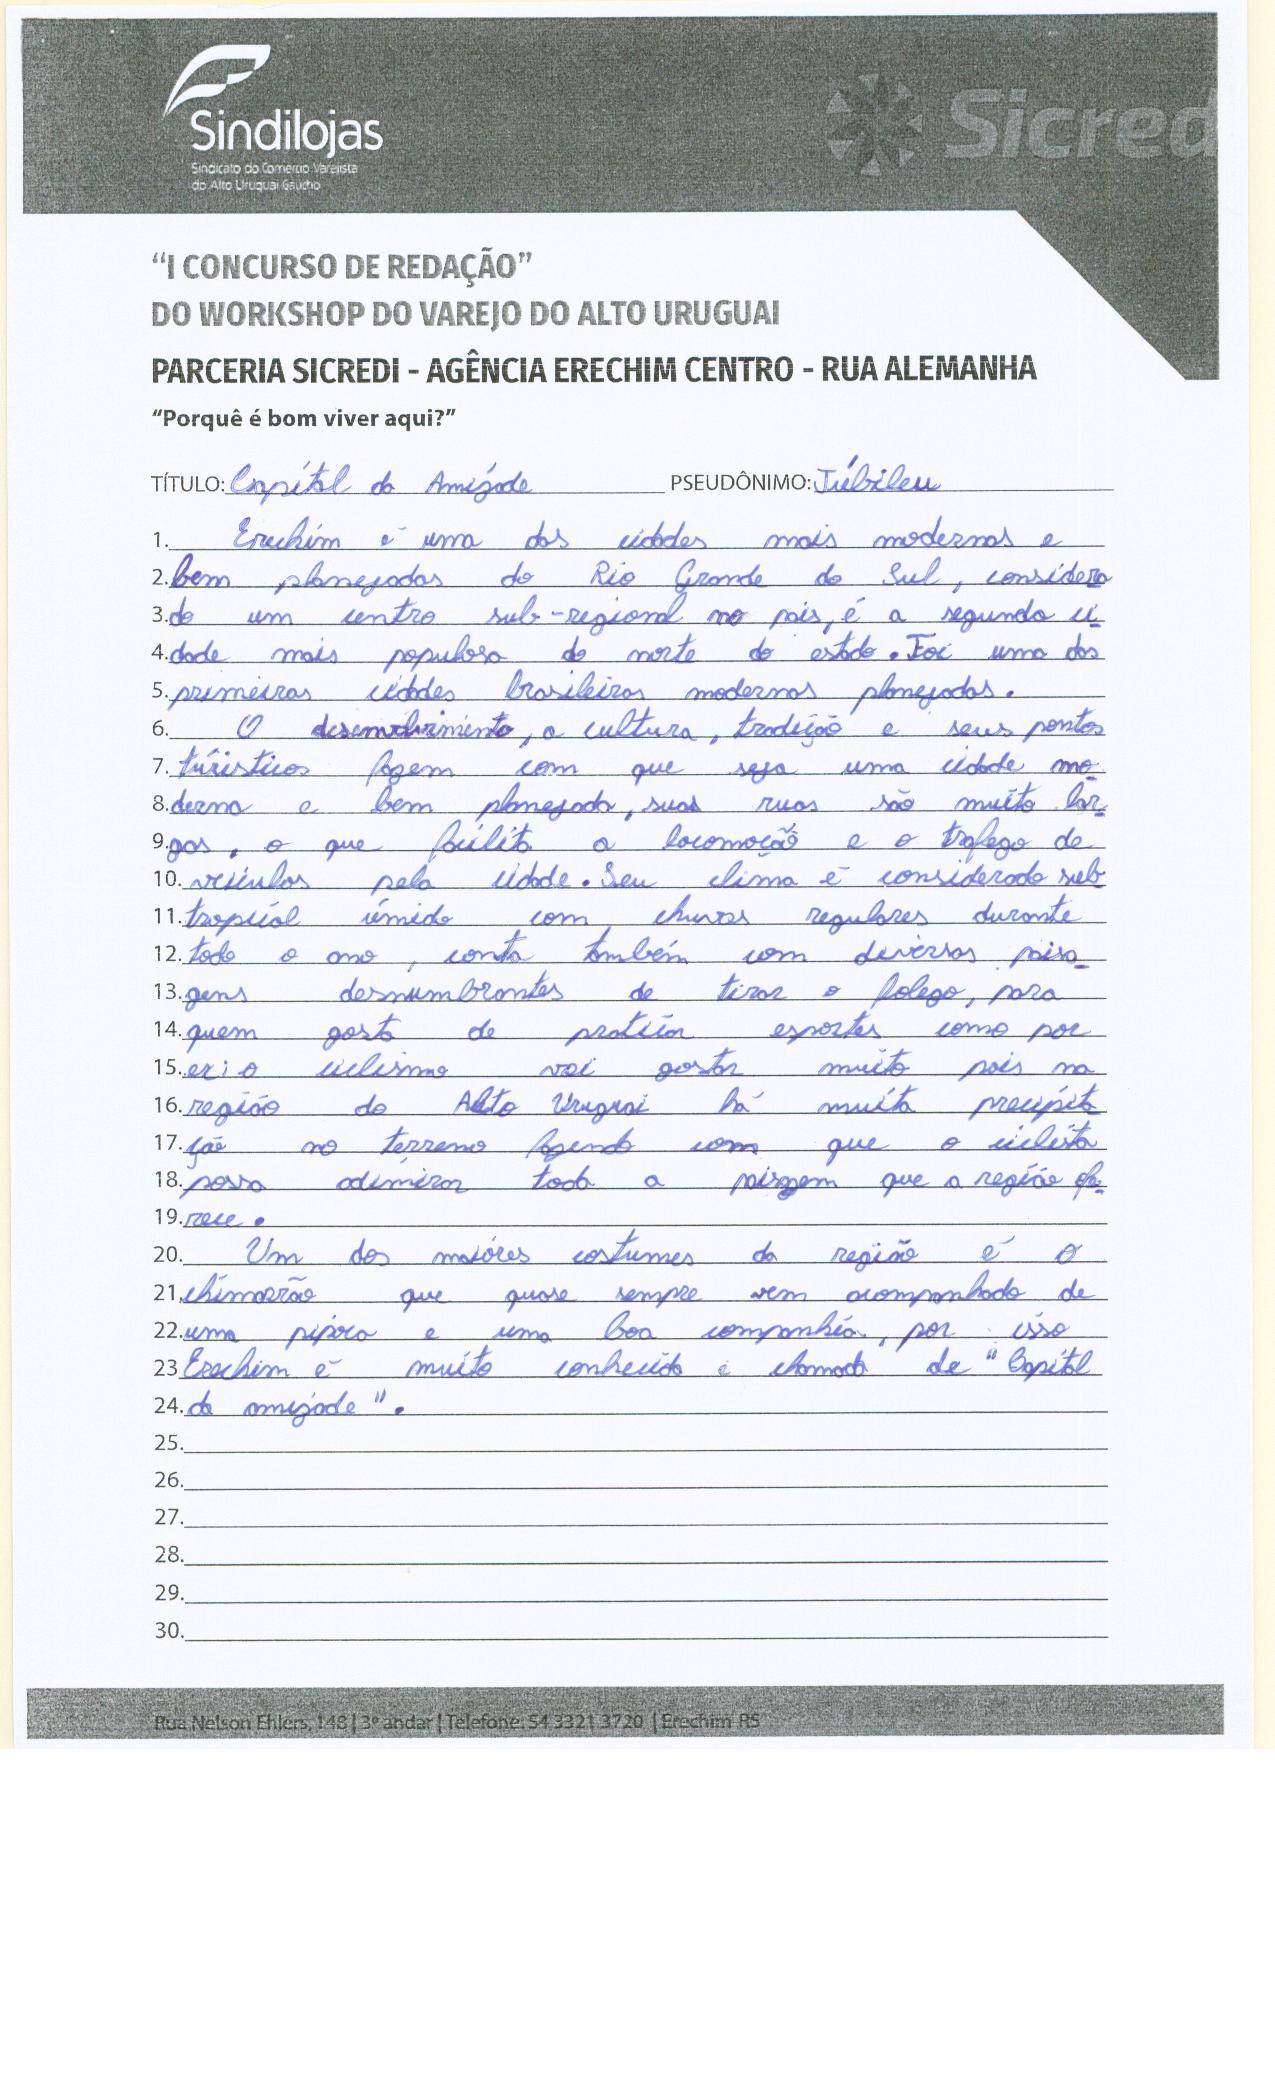 Sindilojas
Sindicato do Comercio Varejista
do Alto Uruguai Gaúcho
Sicred
“I CONCURSO DE REDAÇÃO”
DO WORKSHOP DO VAREJO DO ALTO URUGUAI
PARCERIA SICREDI - AGÊNCIA ERECHIM CENTRO - RUA ALEMANHA
“Porquê é bom viver aqui?”
TÍTULO: Capítal da Amizade PSEUDÔNIMO: Júbileu
1. Erechim é uma das cidades mais modernas e
2. bem planejadas do Rio Grande do Sul, considera
3. do um centro sub-regional no país, é a segunda ci-
4. dade mais populosa do norte do estado. Foi uma das
5. primeiras cidades brasileiras modernas planejadas.
6. O desenvolvimento, a cultura, tradição e seus pontos
7. túristicos fazem com que seja uma cidade mo-
8. derna e bem planejada, suas ruas são muito lar-
9. gas, o que fácilita a locomoção e o trafego de
10. veículos pela cidade. Seu clima é considerado sub
11. tropical úmido com chuvas regulares durante
12. todo o ano, conta também com diversas paisa-
13. gens desnumbrantes de tirar o folego, para
14. quem gosta de praticar esportes como por
15. ex: o ciclismo vai gostar muito pois na
16. região do Alto Uruguai há muita precipita
17. ção no terreno fazendo com que o ciclista
18. possa adimirar toda a paisagem que a região ofe-
19. rece.
20. Um dos maióres costumes da região é o
21. chimarrão que quase sempre vem acompanhado de
22. uma pipóca e uma boa companhia, por isso
23 Erechim é muito conhecida e chamada de "Capítal
24. da amizade".
25.
26.
27.
28.
29.
30.
Rua Nelson Ehlers, 148 | 3º andar | Telefone: 54 3321 3720 | Erechim-RS